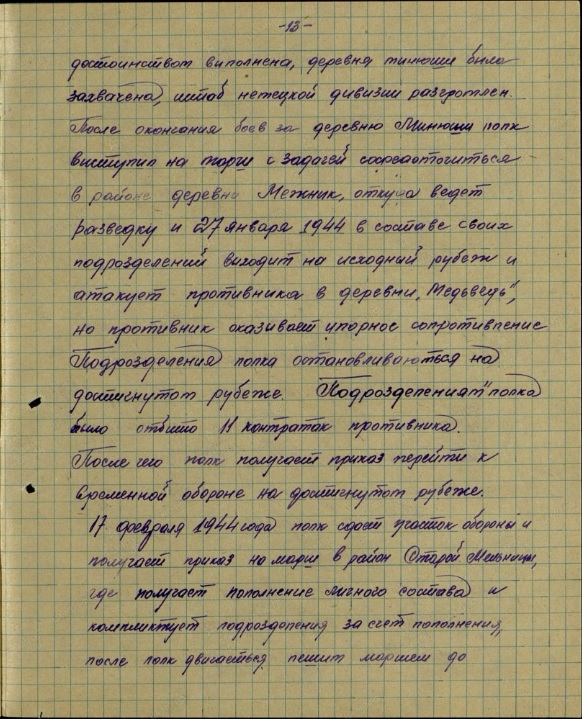 -13-
достоинством выполнена, деревня тинюши была
захвачена, штаб немецкой дивизии разгромлен.
После окончания боев за деревню Минюши полк
виступил на марш с задачей сосредоточиться
в районе деревни Межник, откуда ведет
разведку и 27 января 1944 в составе своих
подрозделений выходит на исходный рубеж и
атакует противника в деревни „Медьведь",
но противник оказивает упорное сопротивление
Подрозделения полка остановливаються на
достигнутом рубеже. Подрозделениям" полка
было отбито 11 контратак противника.
После чего полк получает приказ перейти к
временной обороне на достигнутом рубеже.
17 февраля 1944 года полк сдает участок обороны и
получает приказ на марш в район Старой Мельници,
где получает пополнение личного состава и
компликтует подрозделения за счет пополнения,
после полк двигаеться пешим маршем до